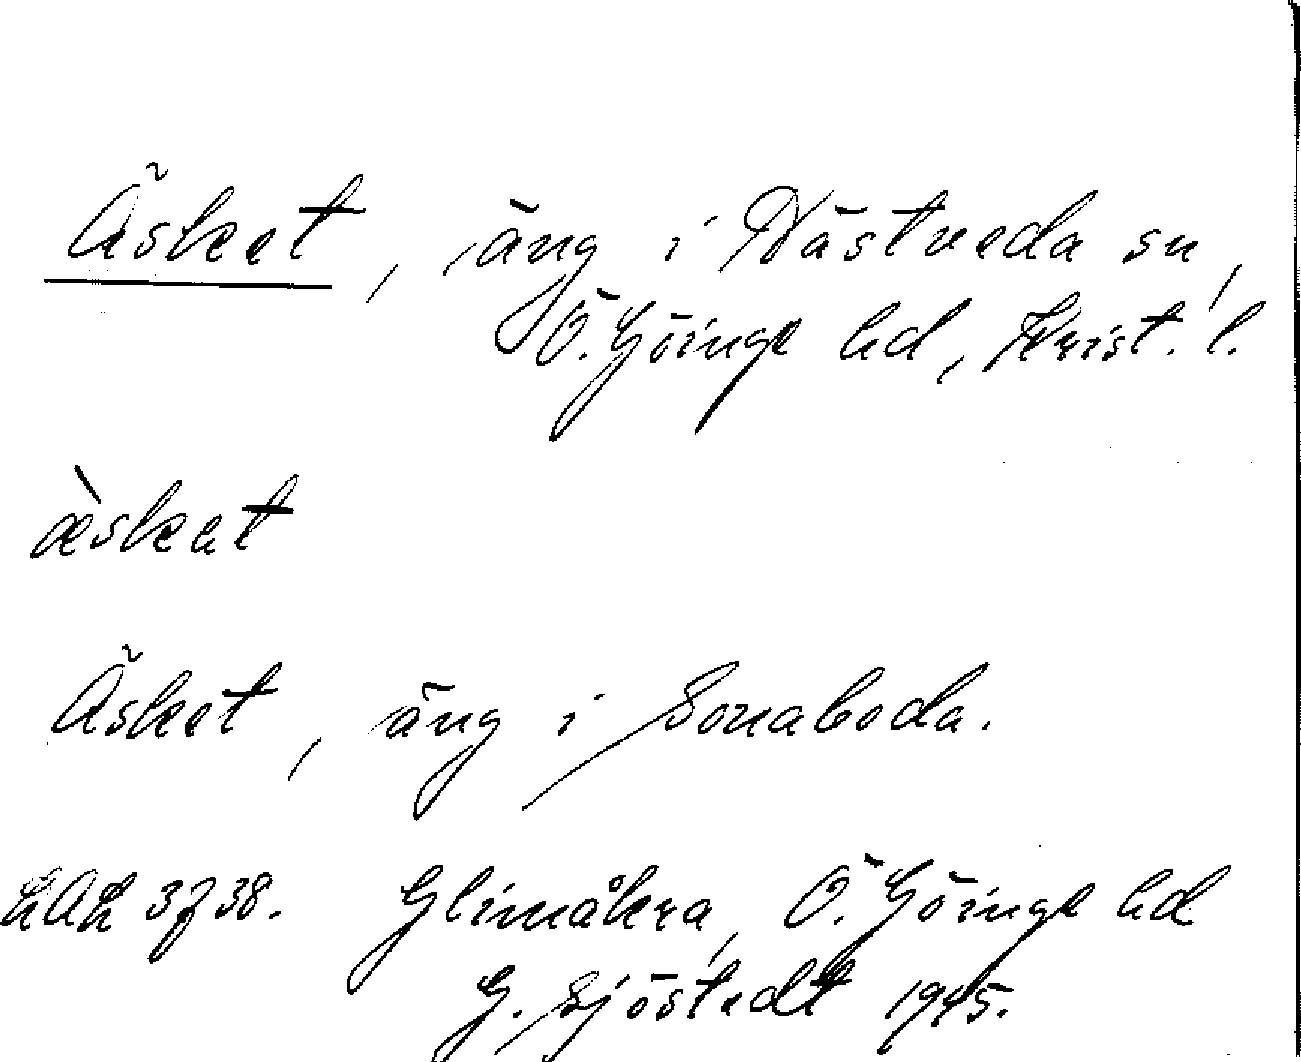 Äsket, äng i Nästveda sn,
Ö. Göinge hd, Krist. l.
æ̀skat
Äsket, äng i Sonaboda.
Glimåkra, Ö. Göinge hd
G. Sjöstedt 1945.